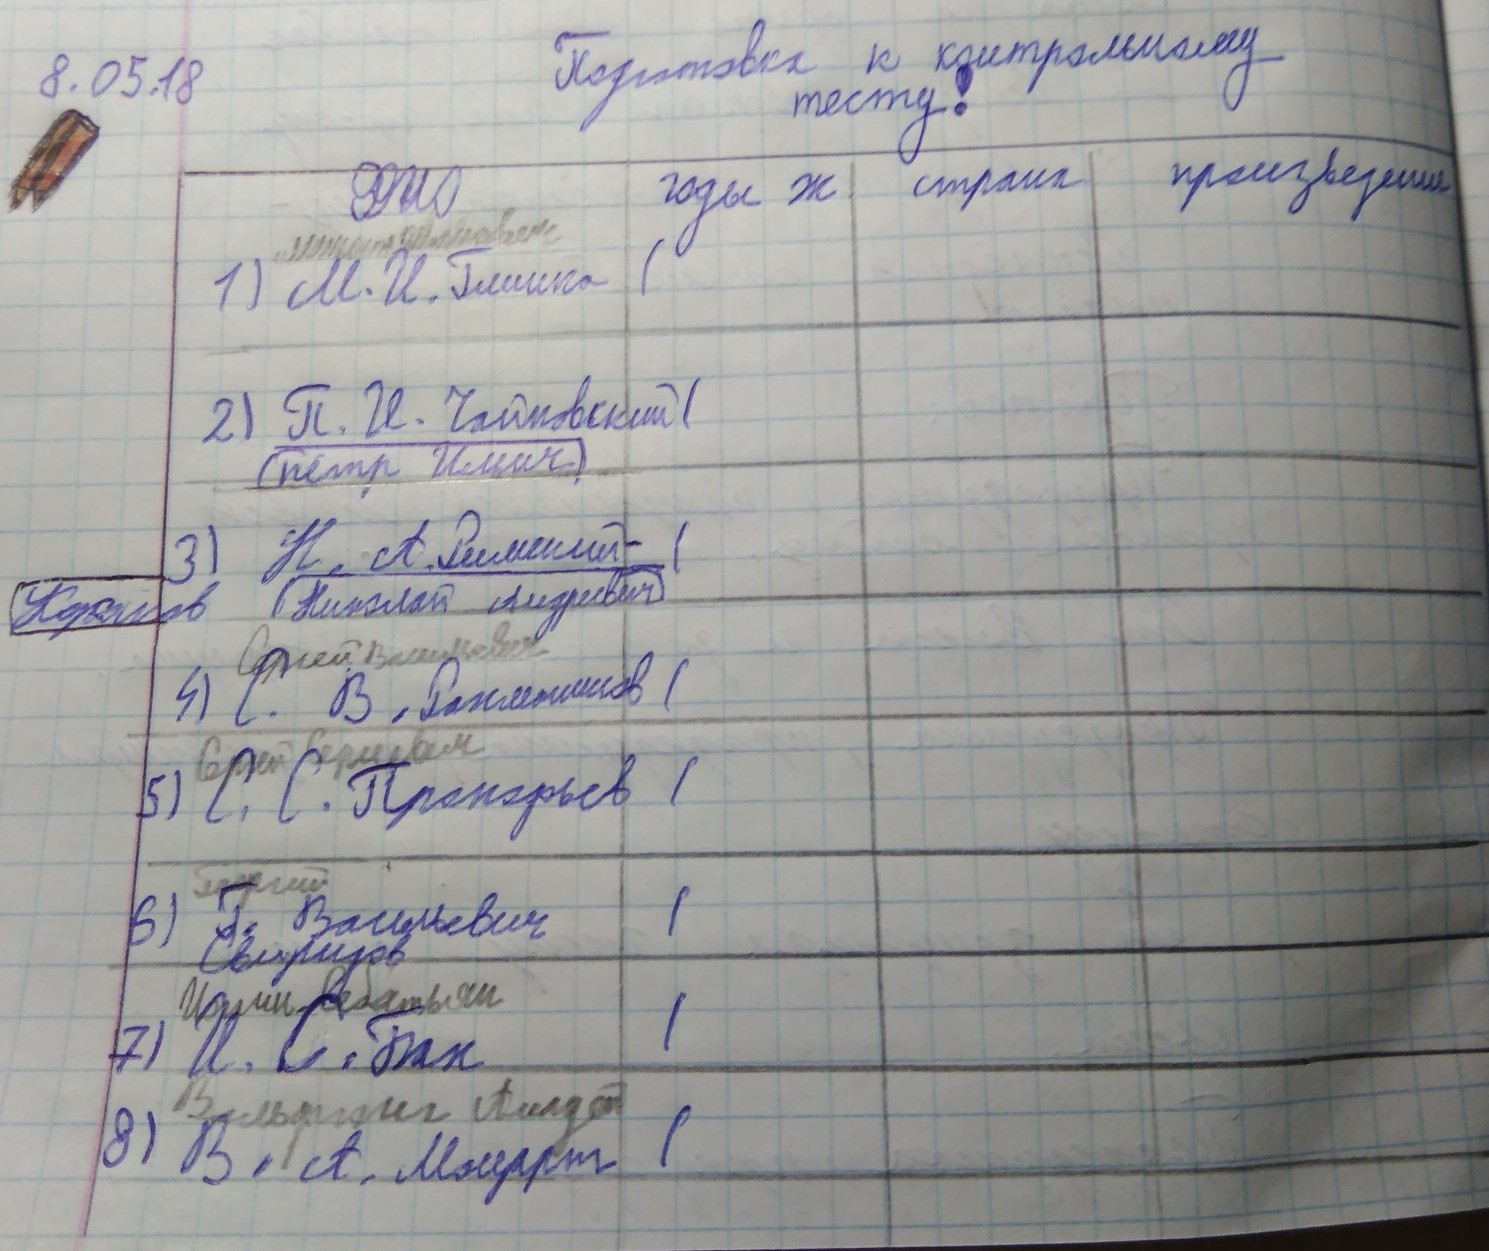 8.05.18
Подготовка к контрольному
тесту!
ФИО годы ж страна произведения
Михаил Иванович
1) М. И. Глинка (
2) П. И. Чайковский (
(Пётр Ильич)
3) Н. А. Римский- (
Корсаков (Николай Андреевич)
Сергей Васильевич
4) С. В. Рахманинов (
Сергей Сергеевич
5) С. С. Прокофьев (
Георгий
6) Г. Васильевич (
Свиридов
Иоганн Себастьян
7) И. С. Бах (
Вольфганг Амадей
8) В. А. Моцарт (